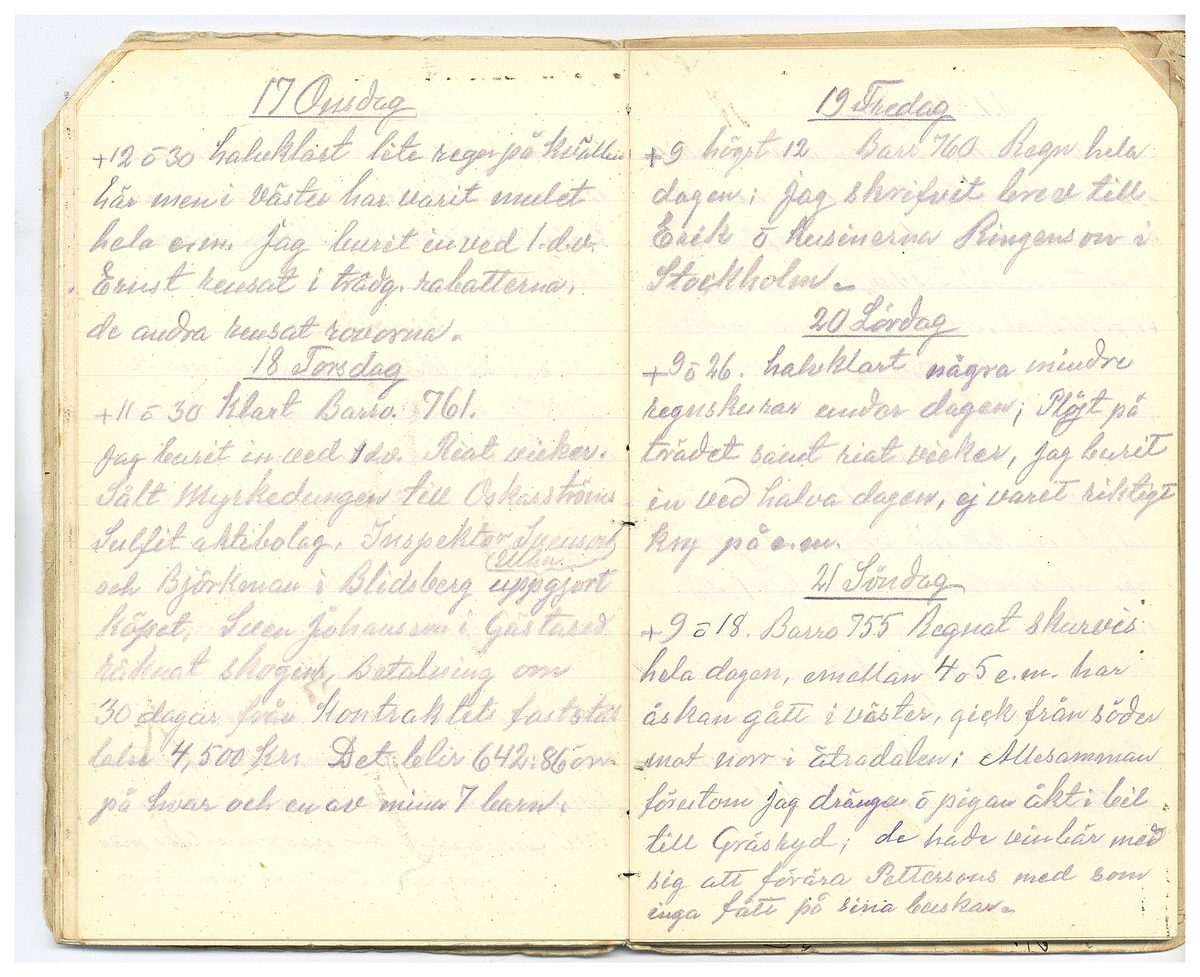 17 Onsdag
+12 ō 30 halvklart lite regn på kvällen
här men i väster har varit mulet
hela e.m. Jag burit in ved 1. d.v.
Ernst rensat i trädg. rabatterna,
de andra rensat rovorna.
18 Torsdag
+11 ō 30 Klart Barro. 761.
Jag burit in ved 1 d.v. Riat vicker.
Sålt Myrkedungen till Oskarströms
Sulfit aktibolag. Inspektor Svenson
Ulhn.
och Björkman i Blidsberg uppgjort
köpet, Sven Johansson i Gästared
räknat skogen, Betalning om
30 dagar från Kontraktets faststäl
lelse 4,500 Kr. Det blir 642:86 öre
på hvar och en av mina 7 barn.
19 Fredag
+9 högst 12 Barr 760 Regn hela
dagen; jag skrifvit brev till
Erik ō kusinerna Ringenson i
Stockholm.
20 Lördag
+9 ō 26. halvklart några mindre
regnskurar under dagen; Plöjt på
trädet samt riat vicker, jag burit
in ved halva dagen, ej varit riktigt
kry på e.m.
21 Söndag
+9 ō 18. Barro 755 Regnat skurvis
hela dagen, emellan 4 ō 5 e.m. har
åskan gått i väster, gick från söder
mot norr i ätradalen; Allesamman
förutom jag drängen ō pigan åkt i bil
till Gräsryd; de hade vinbär med
sig att förära Pettersons med som
inga fått på sina buskar.